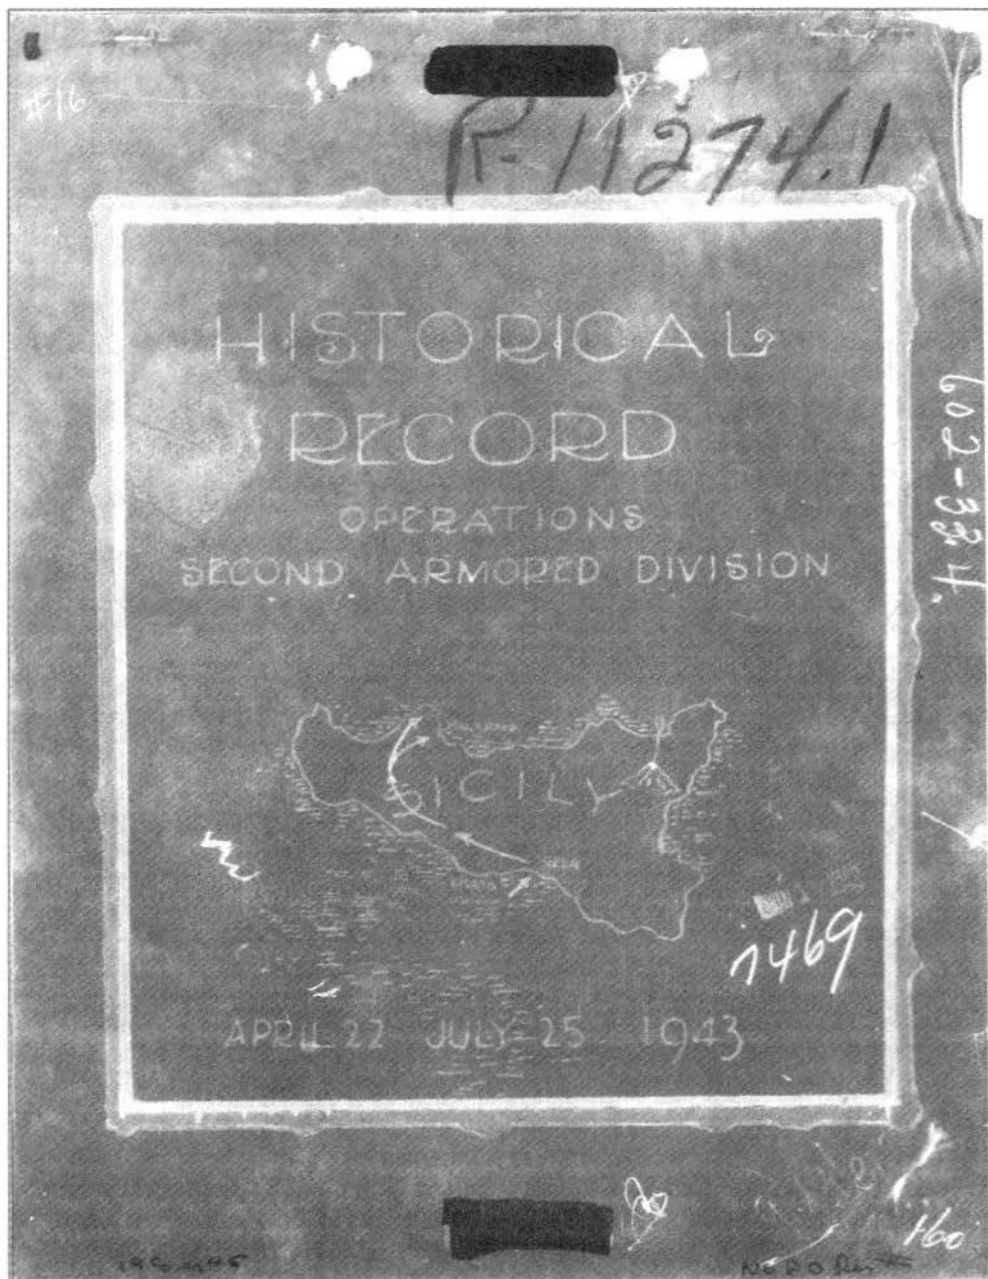 #16
R-11274.1
HISTORICAL
RECORD
OPERATIONS
SECOND ARMORED DIVISION
602-334.
SICILY
GELA
7469
APRIL 22 JULY-25 1943
160